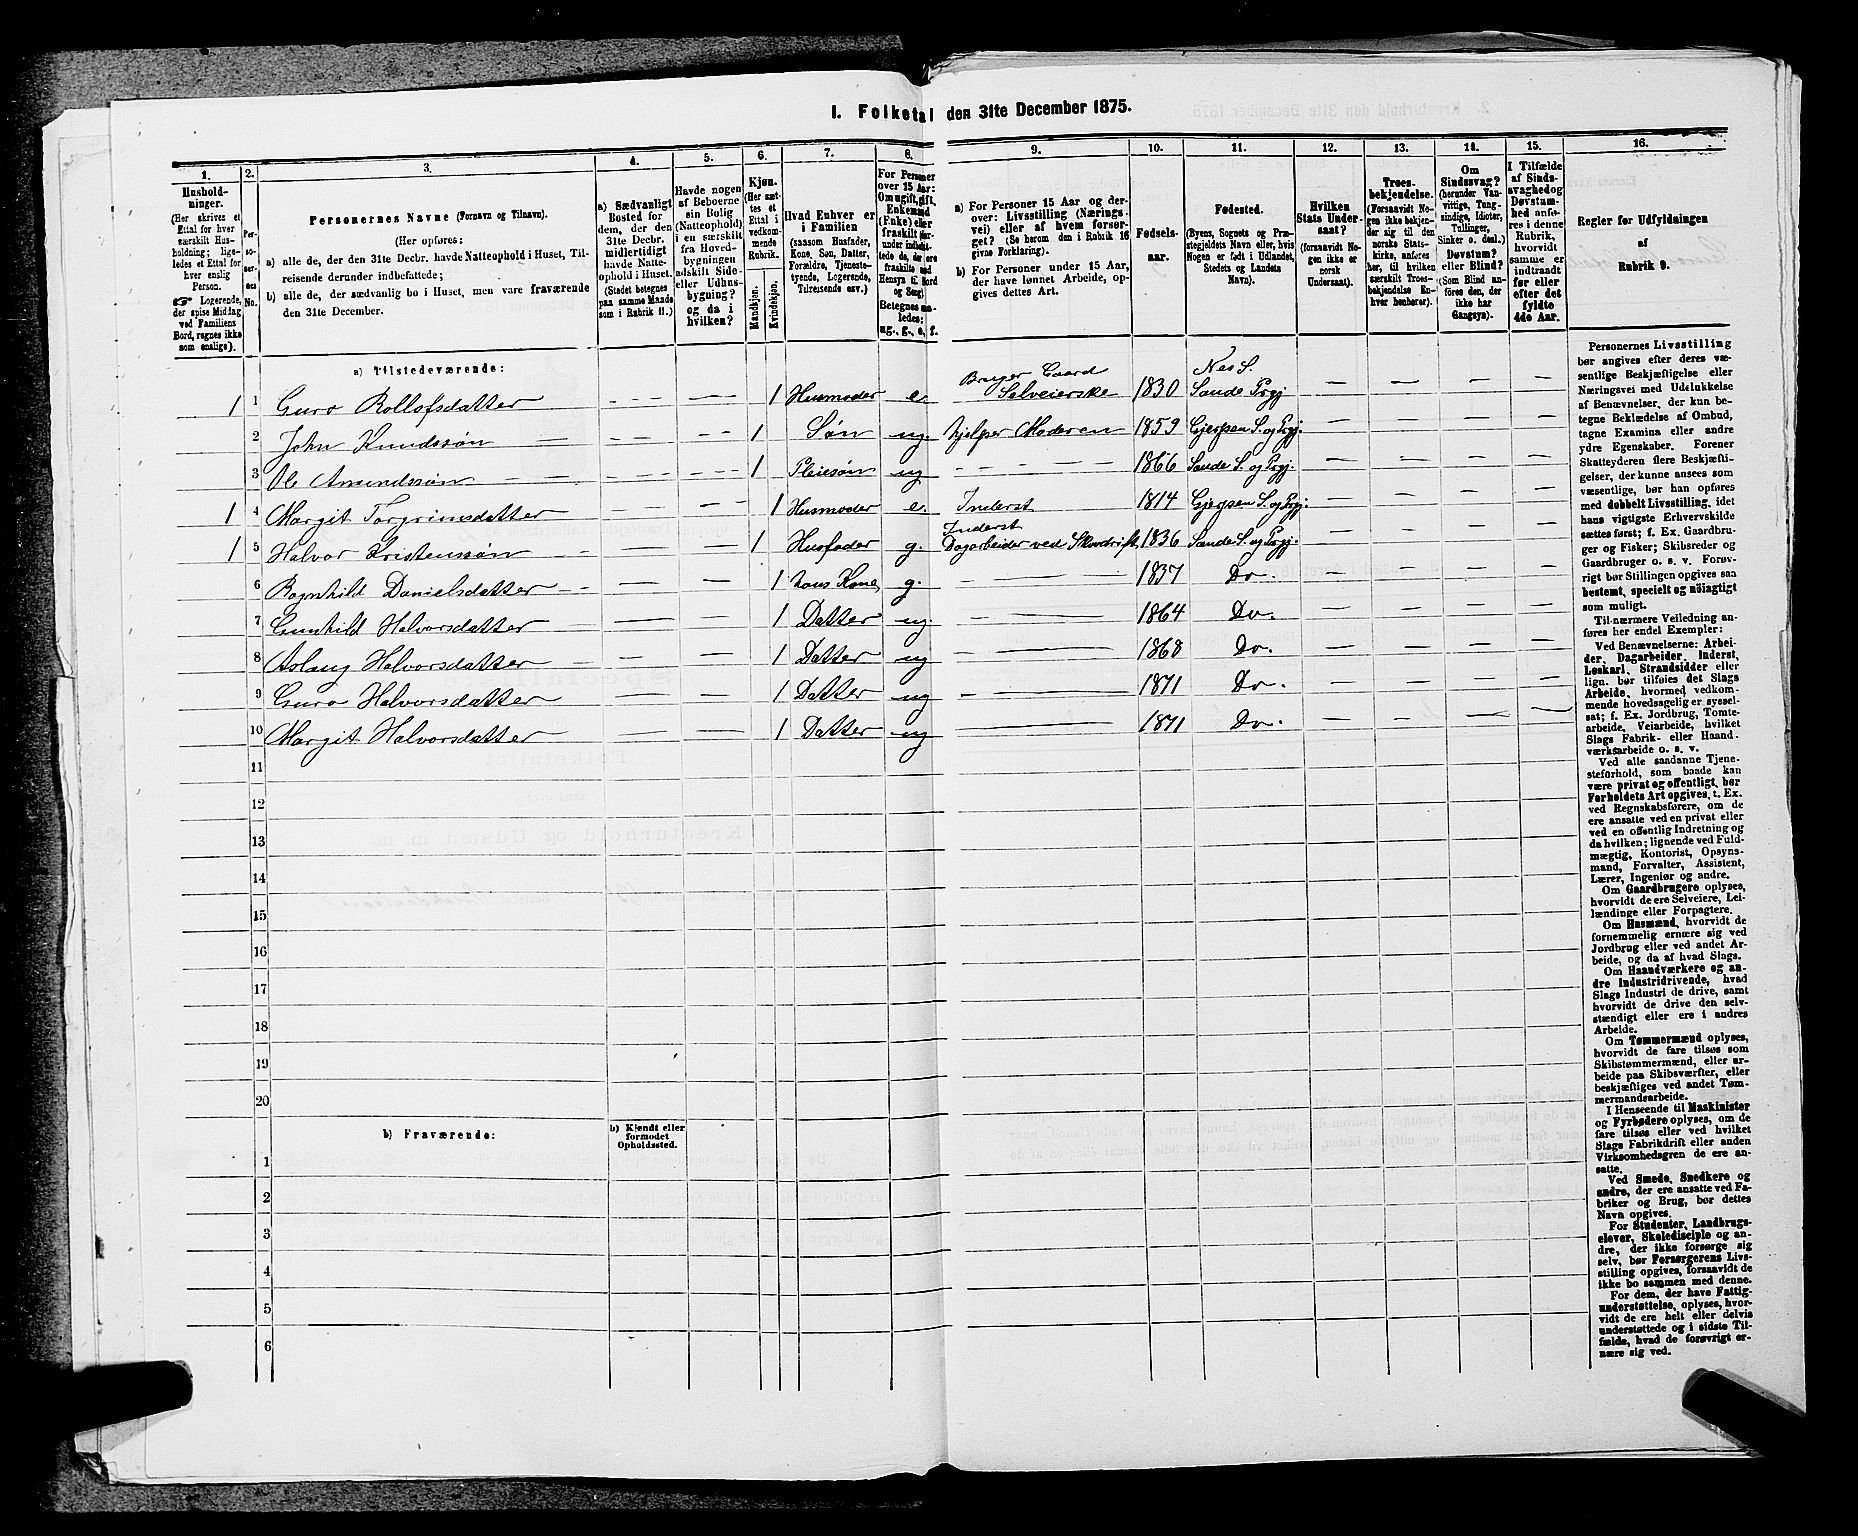 I. Folketal den 31te December 1875.
1. 2. 3. 4. 5. 6. 7. 8. 9. 10. 11. 12. 13. 14. 15. 16.
Husholdninger.
(Her skrives et
Ettal for hver
særskilt Husholdning;
ligeledes et Ettal for
hver enslig
Person.
☞ Logerende,
der spise Middag
ved Familiens
Bord, regnes ikke
som enslige).
Personernes No.
Personernes Navne (Fornavn og Tilnavn).
(Her opføres:
a) alle de, der den 31te Decbr. havde Natteophold i Huset, Tilreisende derunder indbefattede;
b) alle de, der sædvanlig bo i Huset, men vare fraværende
den 31te December.
a) Sædvanligt
Bosted for
dem, der den
31te Decbr.
midlertidigt
havde Natteophold i Huset.
(Stedet betegnes
paa samme Maade
som i Rubrik 11.)
Havde nogen
af Beboerne
sin Bolig
(Natteophold)
i en særskilt
fra Hovedbygningen
adskilt Side-
eller Udhusbygning?
og da i
hvilken?
Kjøn.
(Her sættes
et
Ettal i
vedkommende
Rubrik.
Mandkjøn. Kvindekjøn.
Hvad Enhver er
i Familien
(saasom Husfader,
Kone, Søn, Datter,
Forældre, Tjenestetyende, Logerende,
Tilreisende osv.)
For Personer
over 15 Aar:
Om ugift, gift,
Enkemand
(Enke) eller
fraskilt
Betegnes saaledes:
ug., g., e., f.
a) For Personer 15 Aar og derover: Livsstilling (Næringsvei) eller af hvem forsørget? (Se herom den i Rubrik 16
givne Forklaring).
b) For Personer under 15 Aar,
der have lønnet Arbeide, opgives dettes Art.
Fødselsaar.
Fødested.
(Byens, Sognets og Præstegjeldets Navn eller, hvis
Nogen er født i Udlandet,
Stedets og Landets
Navn).
Hvilken
Stats Undersaat?
(forsaavidt Nogen ikke er
norsk
Undersaat).
Troesbekjendelse.
(Forsaavidt Nogen ikke bekjender sig til den
norske Statskirke, anføres
her, til hvilken
særskilt Troesbekjendelse Enhver henhører).
Om
Sindssvag?
(herunder Vanvittige, Tungsindige, Idioter,
Tullinger,
Sinker o. desl.)
Døvstum?
eller Blind?
(Som Blind anføres den, der
ikke har
Gangsyn).
I Tilfælde
af Sindssvaghed og
Døvstumhed anføres i denne
Rubrik,
hvorvidt
samme er
indtraadt
før eller
efter det
fyldte
4de Aar.
Regler for Udfyldningen
af
Rubrik 9.
a) Tilstedeværende:
1 1 Guro Rollofsdatter 1 Husmoder e. Bruger Gaard Selveierske 1830 Nes S. Saude Prgj — — — —
2 John Knudssøn 1 Søn ug. hjelper Moderen 1859 Gjerpen S. og Prgj. — — — —
3 Ole Amundssøn 1 Pleiesøn ug 1866 Saude S. og Prgj. — — — —
1 4 Margit Torgrimsdatter 1 Husmoder e. Inderst 1814 Gjerpen S. og Prgj. — — — —
1 5 Halvor Kristenssøn 1 Husfader g. Inderst Dagarbeider ved Skovdrift 1836 Saude S. og Prgj. — — — —
6 Ragnhild Danielsdatter 1 hans Kone g. 1837 Do. — — — —
7 Gunhild Halvorsdatter 1 Datter ug 1864 Do. — — — —
8 Aslaug Halvorsdatter 1 Datter ug 1868 Do. — — — —
9 Guro Halvorsdatter 1 Datter ug 1871 Do. — — — —
10 Margit Halvorsdatter 1 Datter ug 1871 Do. — — — —
11
12
13
14
15
16
17
18
19
20
b) Fraværende: b) Kjendt eller
formodet
Opholdssted.
1
2
3
4
5
6
Personernes Livsstilling
bør angives efter deres væsentlige Beskjæftigelse eller
Næringsvei med Udelukkelse
af Benævnelser, der kun betegne Beklædelse af Ombud,
tagne Examina eller andre
ydre Egenskaber. Forener
Skatteyderen flere Beskjæftigelser, der kunne ansees som
væsentlige, bør han opføres
med dobbelt Livsstilling, idet
hans vigtigste Erhvervskilde
sættes først; f. Ex. Gaardbruger og Fisker; Skibsreder og
Gaardbruger o. s. v. Forøvrigt bør Stillingen opgives saa
bestemt, specielt og nøiagtigt
som muligt.
Til nærmere Veiledning anføres her endel Exempler:
Ved Benævnelserne: Arbeider, Dagarbeider, Inderst,
Løskarl, Strandsidder eller
lign. bør tilføies det Slags
Arbeide, hvormed vedkommende hovedsagelig er sysselsat; f. Ex. Jordbrug, Tomtearbeide, Veiarbeide, hvilket
Slags Fabrik- eller Haandværksarbeide o. s. v.
Ved alle saadanne Tjenesteforhold, som baade kan
være privat og offentligt, bør
Forholdets Art opgives, t. Ex.
ved Regnskabsførere, om de
ere ansatte ved en privat eller
ved en offentlig Indretning og
da hvilken; lignende ved Fuldmægtig, Kontorist, Opsynsmand, Forvalter, Assistent,
Lærer, Ingeniør og andre.
Om Gaardbrugere oplyses,
hvorvidt de ere Selveiere, Leilændinge eller Forpagtere.
Om Husmænd, hvorvidt de
fornemmelig ernære sig ved
Jordbrug eller ved andet Arbeide, og da af hvad Slags.
Om Haandværkere og andre Industridrivende, hvad
Slags Industri de drive, samt
hvorvidt de drive den selvstændigt eller ere i andres
Arbeide.
Om Tømmermænd oplyses,
hvorvidt de fare tilsøs som
Skibstømmermænd, eller arbeide paa Skibsværfter, eller
beskjæftiges ved andet Tømmermandsarbeide.
I Henseende til Maskinister
og Fyrbødere oplyses, om de
fare tilsøs eller ved hvilket
Slags Fabrikdrift eller anden
Virksomhedsgren de ere ansatte.
Ved Smede, Snedkere og
andre, der ere ansatte ved Fabriker og Brug, bør dettes
Navn opgives.
For Studenter, Landbrugselever, Skoledisciple og andre, der ikke forsørge sig
selv, bør Forsørgerens Livsstilling opgives, forsaavidt de
ikke bo sammen med denne.
For dem, der have Fattigunderstøttelse, oplyses, hvorvidt de ere helt eller delvis
understøttede og i sidste Tilfælde, hvad de forøvrigt ernære sig ved.